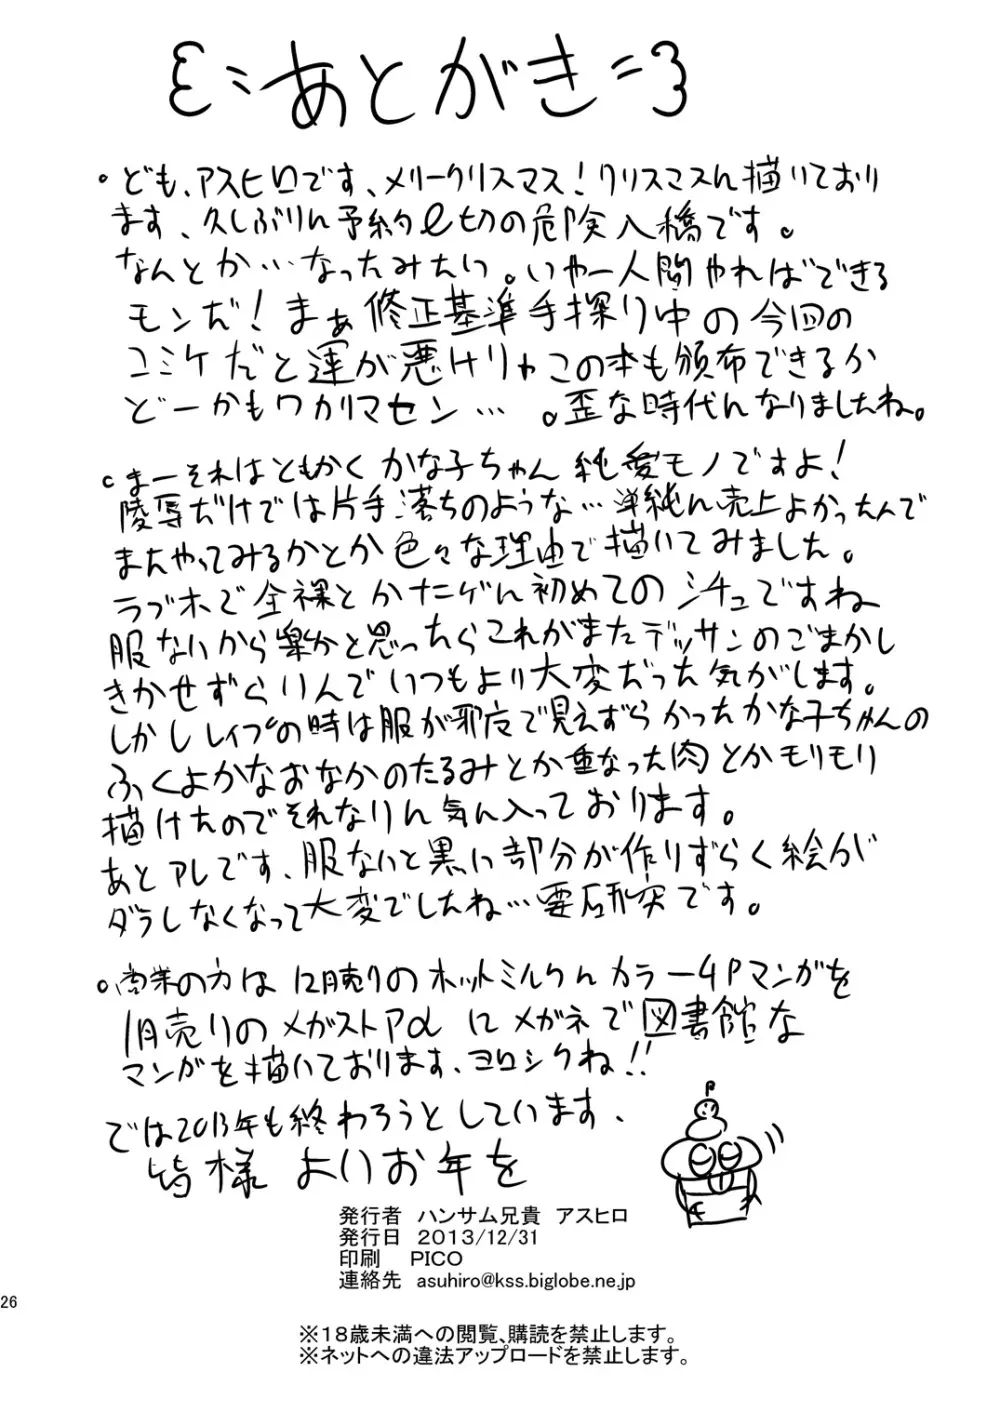 あとがき
・ども、アスヒロです、メリークリスマス!クリスマスに描いており
ます、久しぶりに予約〆切の危険入稿です。
なんとか…なったみたい。いやー人間やればできる
モンだ!まぁ修正基準手探り中の今回の
コミケだと運が悪けりゃこの本も頒布できるか
どーかもワカリマセン…。歪な時代になりましたね。
・まーそれはともかくかな子ちゃん純愛モノですよ!
陵辱だけでは片手落ちのような…単純に売上よかったんで
またやってみるかとか色々な理由で描いてみました。
ラブホで全裸とかナニゲに初めてのシチュですね
服ないから楽かと思ったらこれがまたデッサンのごまかし
きかせずらいんでいつもより大変だった気がします。
しかしレイプの時は服が邪魔で見えずらかったかな子ちゃんの
ふくよかなおなかのたるみとか重なった肉とかモリモリ
描けたのでそれなりに気に入っております。
あとアレです、服ないと黒い部分が作りずらく絵が
ダラしなくなって大変でしたね…要研究です。
・商業の方は12月売りのホットミルクにカラー4Pマンガを
1月売りのメガストアαにメガネで図書館な
マンガを描いております、ヨロシクね!!
では2013年も終わろうとしています、
皆様よいお年を
発行者 ハンサム兄貴 アスヒロ
発行日 2013/12/31
印刷 PICO
連絡先 asuhiro@kss.biglobe.ne.jp
26
※18歳未満への閲覧、購読を禁止します。
※ネットへの違法アップロードを禁止します。